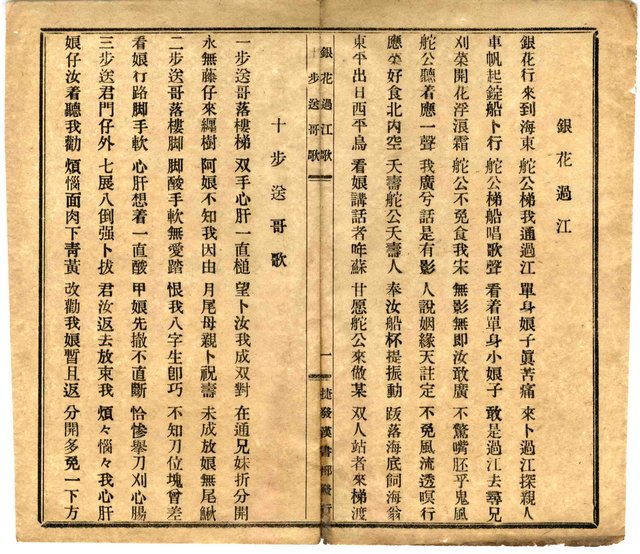 銀花過江
銀花行來到海東 舵公梯我通過江 單身娘子眞苦痛 來卜過江探親人
車帆起錠船卜行 舵公梯船唱歌聲 看着單身小娘子 敢是過江去尋兄
刈菜開花浮浪霜 舵公不免食我宋 無影無即汝敢廣 不驚嘴胚乎鬼風
舵公聽着應一聲 我廣兮話是有影 人說姻緣天註定 不免風流透暝行
應菜好食北內空 夭壽舵公夭壽人 奉汝船杯提振動 跋落海底飼海翁
東平出日西平烏 看娘講話者哖蘇 甘愿舵公來做某 双人站者來梯渡
銀花過江歌
十步送哥歌
一
捷發漢書部發行
十步送哥歌
一步送哥落樓梯 双手心肝一直槌 望卜汝我成双對 在通兄妹折分開
永無藤仔來纒樹 阿娘不知我因由 月尾母親卜祝壽 未成放娘無尾鰍
二步送哥落樓脚 脚酸手軟無愛踏 恨我八字生卽巧 不知刀位塊曾差
看娘行路脚手軟 心肝想着一直酸 甲娘先撤不直斷 恰慘舉刀刈心腸
三步送君門仔外 七展八倒强卜拔 君汝返去放束我 煩々惱々我心肝
娘仔汝着聽我勸 煩惱面肉下靑黃 改勸我娘暫且返 分開多免一下方